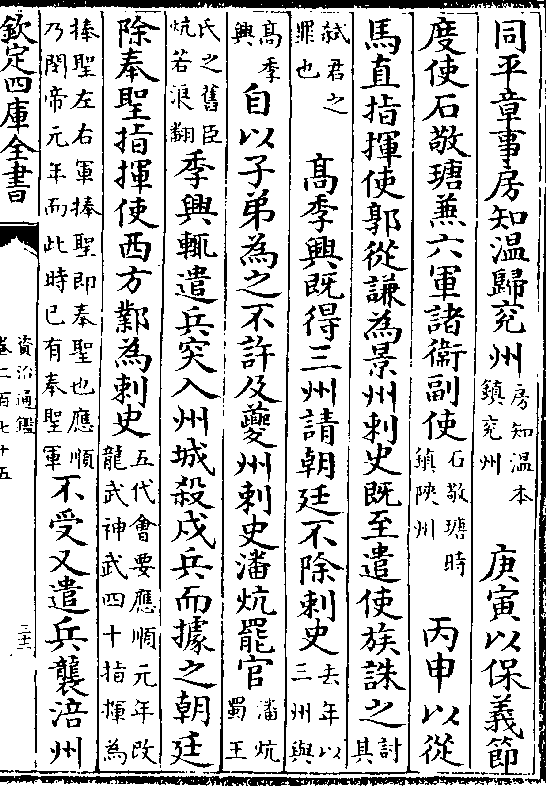 同平章事房知溫歸兖州房知溫本鎮兖州　庚寅以保義節
度使石敬瑭兼六軍諸衛副使石敬瑭時鎮陜州　丙申以從
馬直指揮使郭從謙為景州刺史既至遣使族誅之討其
弑君之罪也　髙季興既得三州請朝廷不除刺史去年以三州與
髙季興自以子弟為之不許及夔州刺史潘炕罷官潘炕蜀王
氏之舊臣炕若浪翻季興輒遣兵突入州城殺戍兵而據之朝廷
除奉聖指揮使西方鄴為刺史五代會要應順元年改龍武神武四十指揮為
捧聖左右軍捧聖即奉聖也應順乃閔帝元年而此時已有奉聖軍不受又遣兵襲涪州
欽定四庫全書
資治通鑑
卷二百七十五